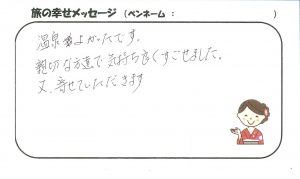 旅の幸せメッセージ（ペンネーム：　　　）
温泉よかったです。
親切な方達で気持ち良くすごせました。
又、寄せていただきます